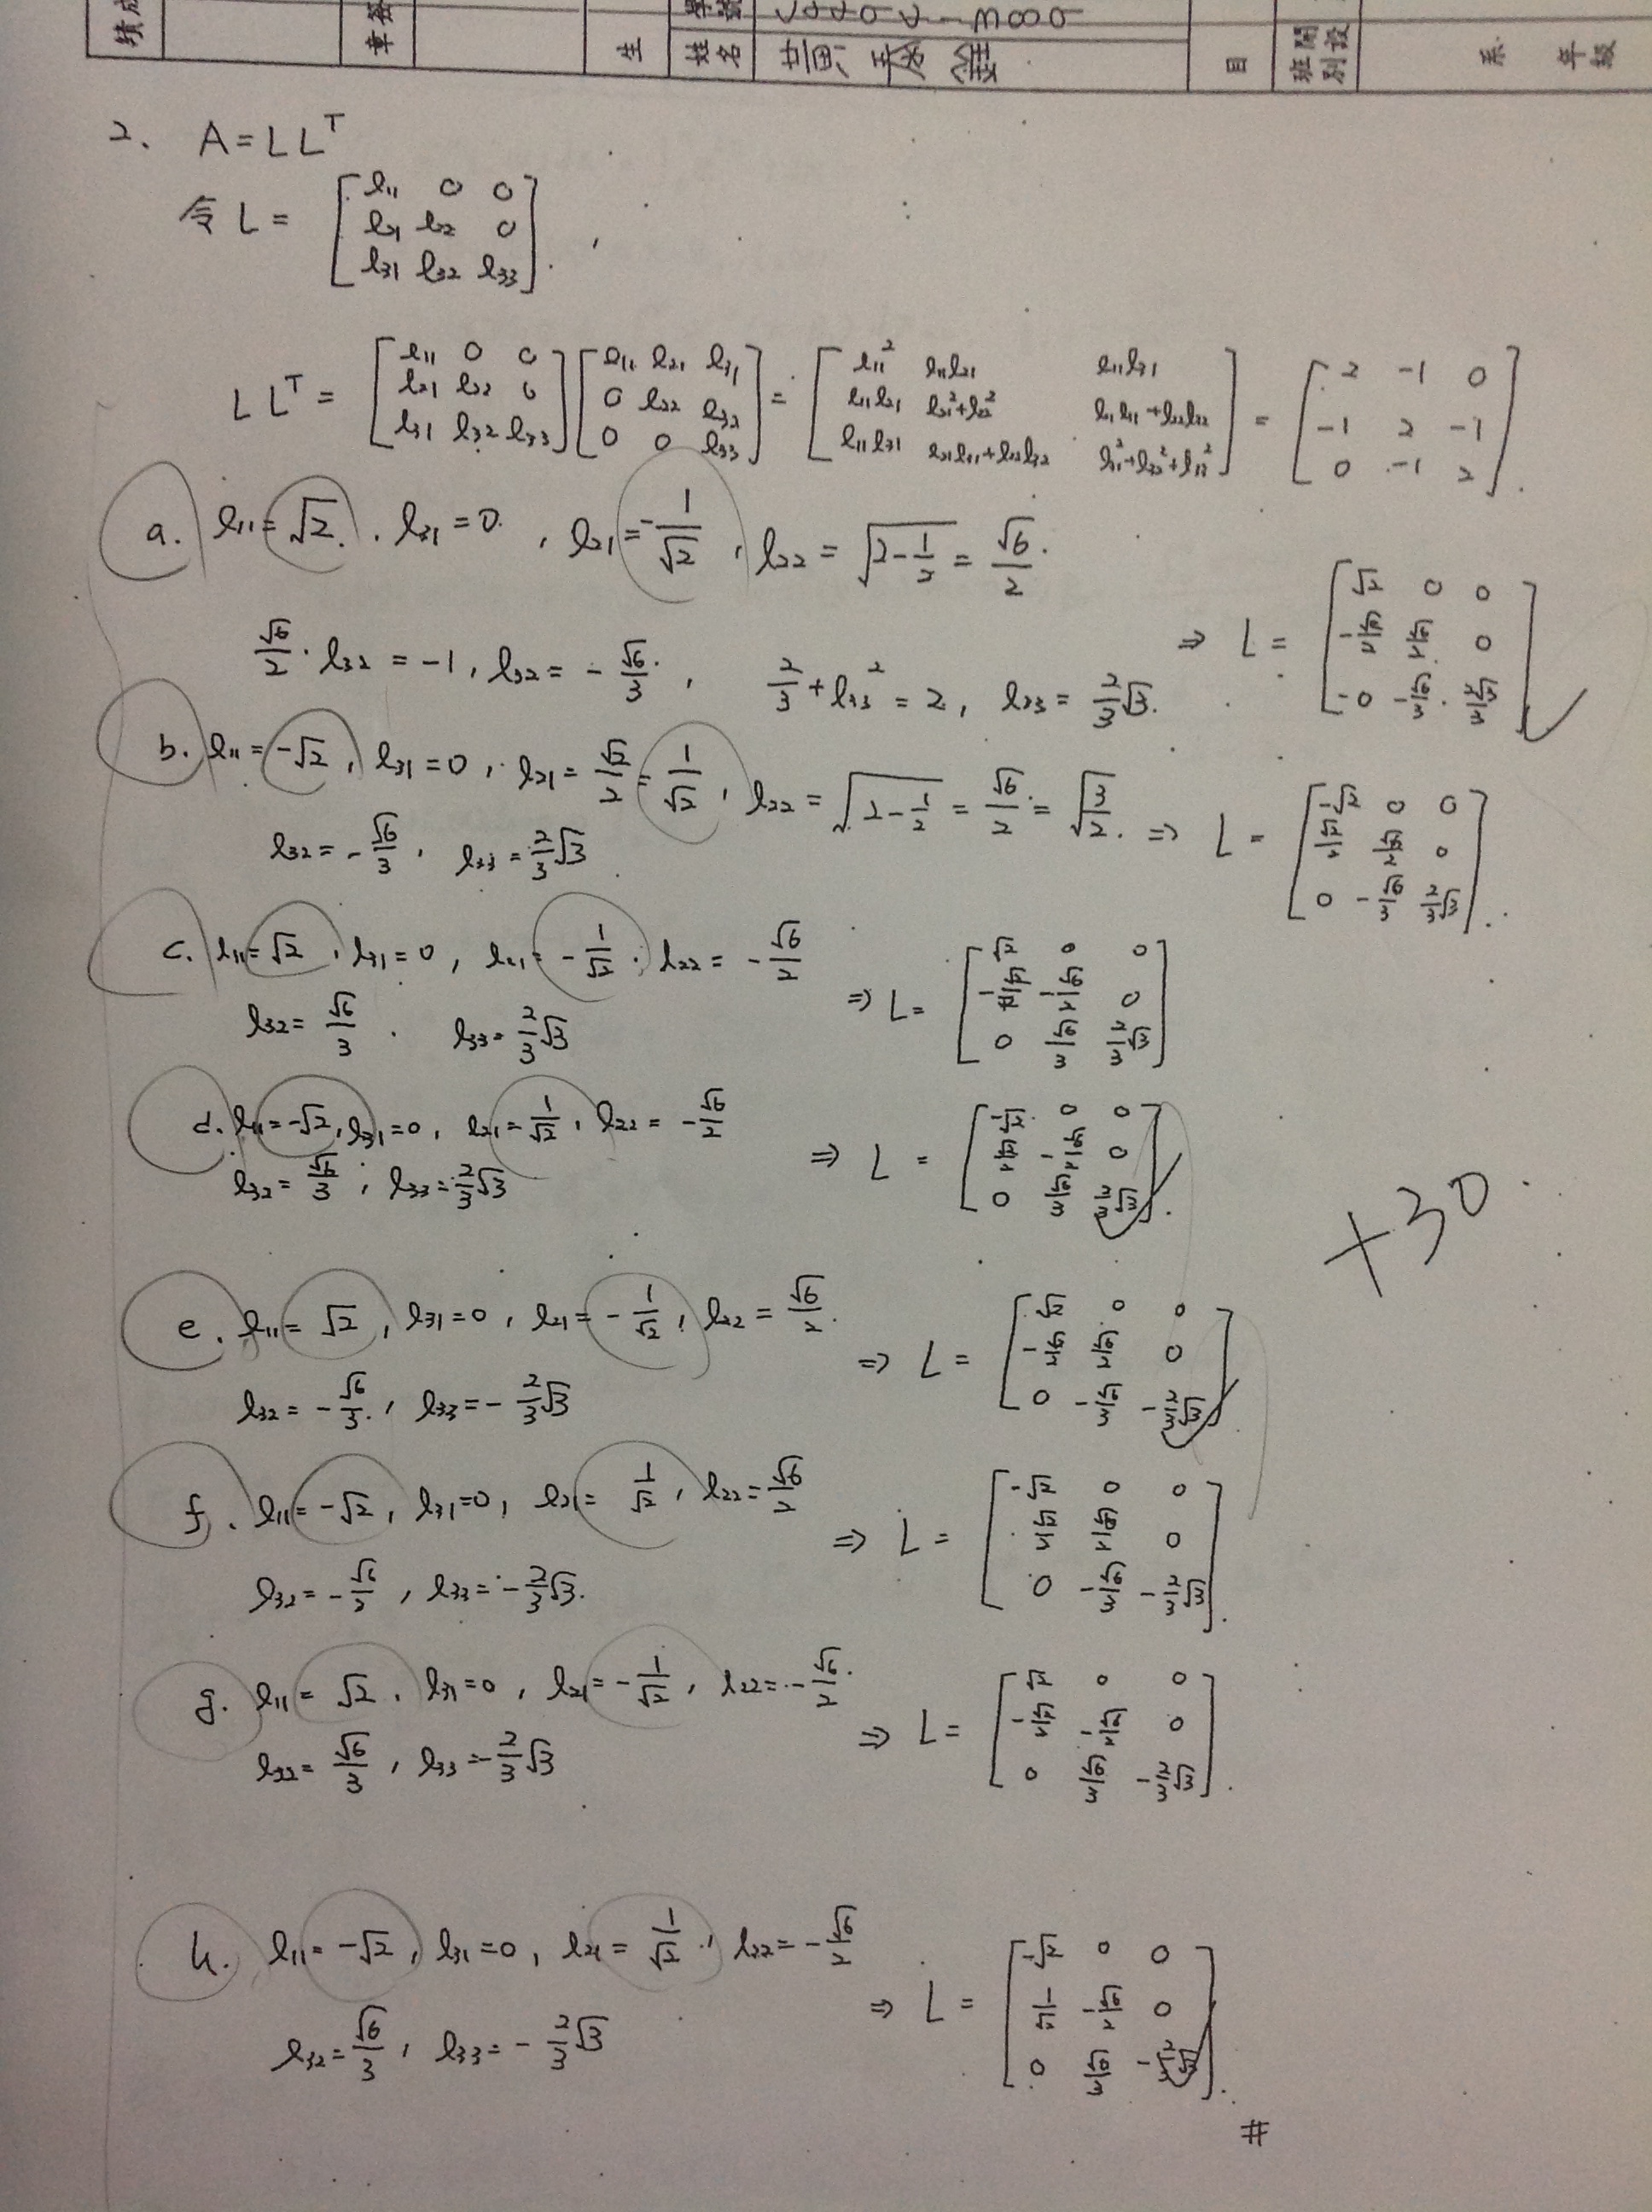 績成
生
姓名
目
班別
開設
系
年級
2. A=LLᵀ
令 L = [l11 0 0; l21 l22 0; l31 l32 l33].
LLᵀ = [l11 0 0; l21 l22 0; l31 l32 l33] [l11 l21 l31; 0 l22 l32; 0 0 l33] = [l11² l11l21 l11l31; l11l21 l21²+l22² l21l31+l22l32; l11l31 l21l31+l22l32 l31²+l32²+l33²] = [2 -1 0; -1 2 -1; 0 -1 2].
a. l11=√2, l31=0, l21=-1/√2, l22=√(2-1/2)=√6/2.
√6/2·l32=-1, l32=-√6/3, 2/3+l33²=2, l33=2/3√3. ⇒ L= [√2 0 0; -√2/2 √6/2 0; 0 -√6/3 2√3/3]
b. l11=-√2, l31=0, l21=√2/2=1/√2, l22=√(2-1/2)=√6/2=√(3/2). ⇒ L= [-√2 0 0; √2/2 √6/2 0; 0 -√6/3 2/3√3].
l32=-√6/3, l33=2/3√3
c. l11=√2, l31=0, l21=-1/√2, l22=-√6/2
l32=√6/3, l33=2/3√3 ⇒ L= [√2 0 0; -√2/2 -√6/2 0; 0 √6/3 2/3√3]
d. l11=-√2, l31=0, l21=1/√2, l22=-√6/2
l32=√6/3, l33=2/3√3 ⇒ L= [-√2 0 0; √2/2 -√6/2 0; 0 √6/3 2/3√3].
+30
e. l11=√2, l31=0, l21=-1/√2, l22=√6/2.
l32=-√6/3, l33=-2/3√3 ⇒ L= [√2 0 0; -√2/2 √6/2 0; 0 -√6/3 -2/3√3]
f. l11=-√2, l31=0, l21=1/√2, l22=√6/2
l32=-√6/2, l33=-2/3√3. ⇒ L= [-√2 0 0; √2/2 √6/2 0; 0 -√6/3 -2/3√3].
g. l11=√2, l31=0, l21=-1/√2, l22=-√6/2.
l32=√6/3, l33=-2/3√3 ⇒ L= [√2 0 0; -√2/2 -√6/2 0; 0 √6/3 -2/3√3].
h. l11=-√2, l31=0, l21=1/√2, l22=-√6/2
l32=√6/3, l33=-2/3√3 ⇒ L= [-√2 0 0; 1/√2 -√6/2 0; 0 √6/3 -2/3√3].
#